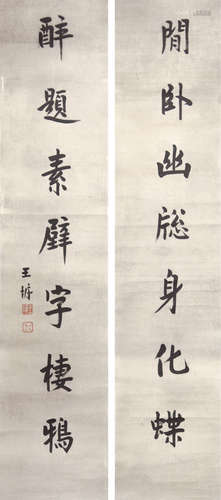 閒卧幽牕身化蝶
醉題素壁字棲鴉
王墀